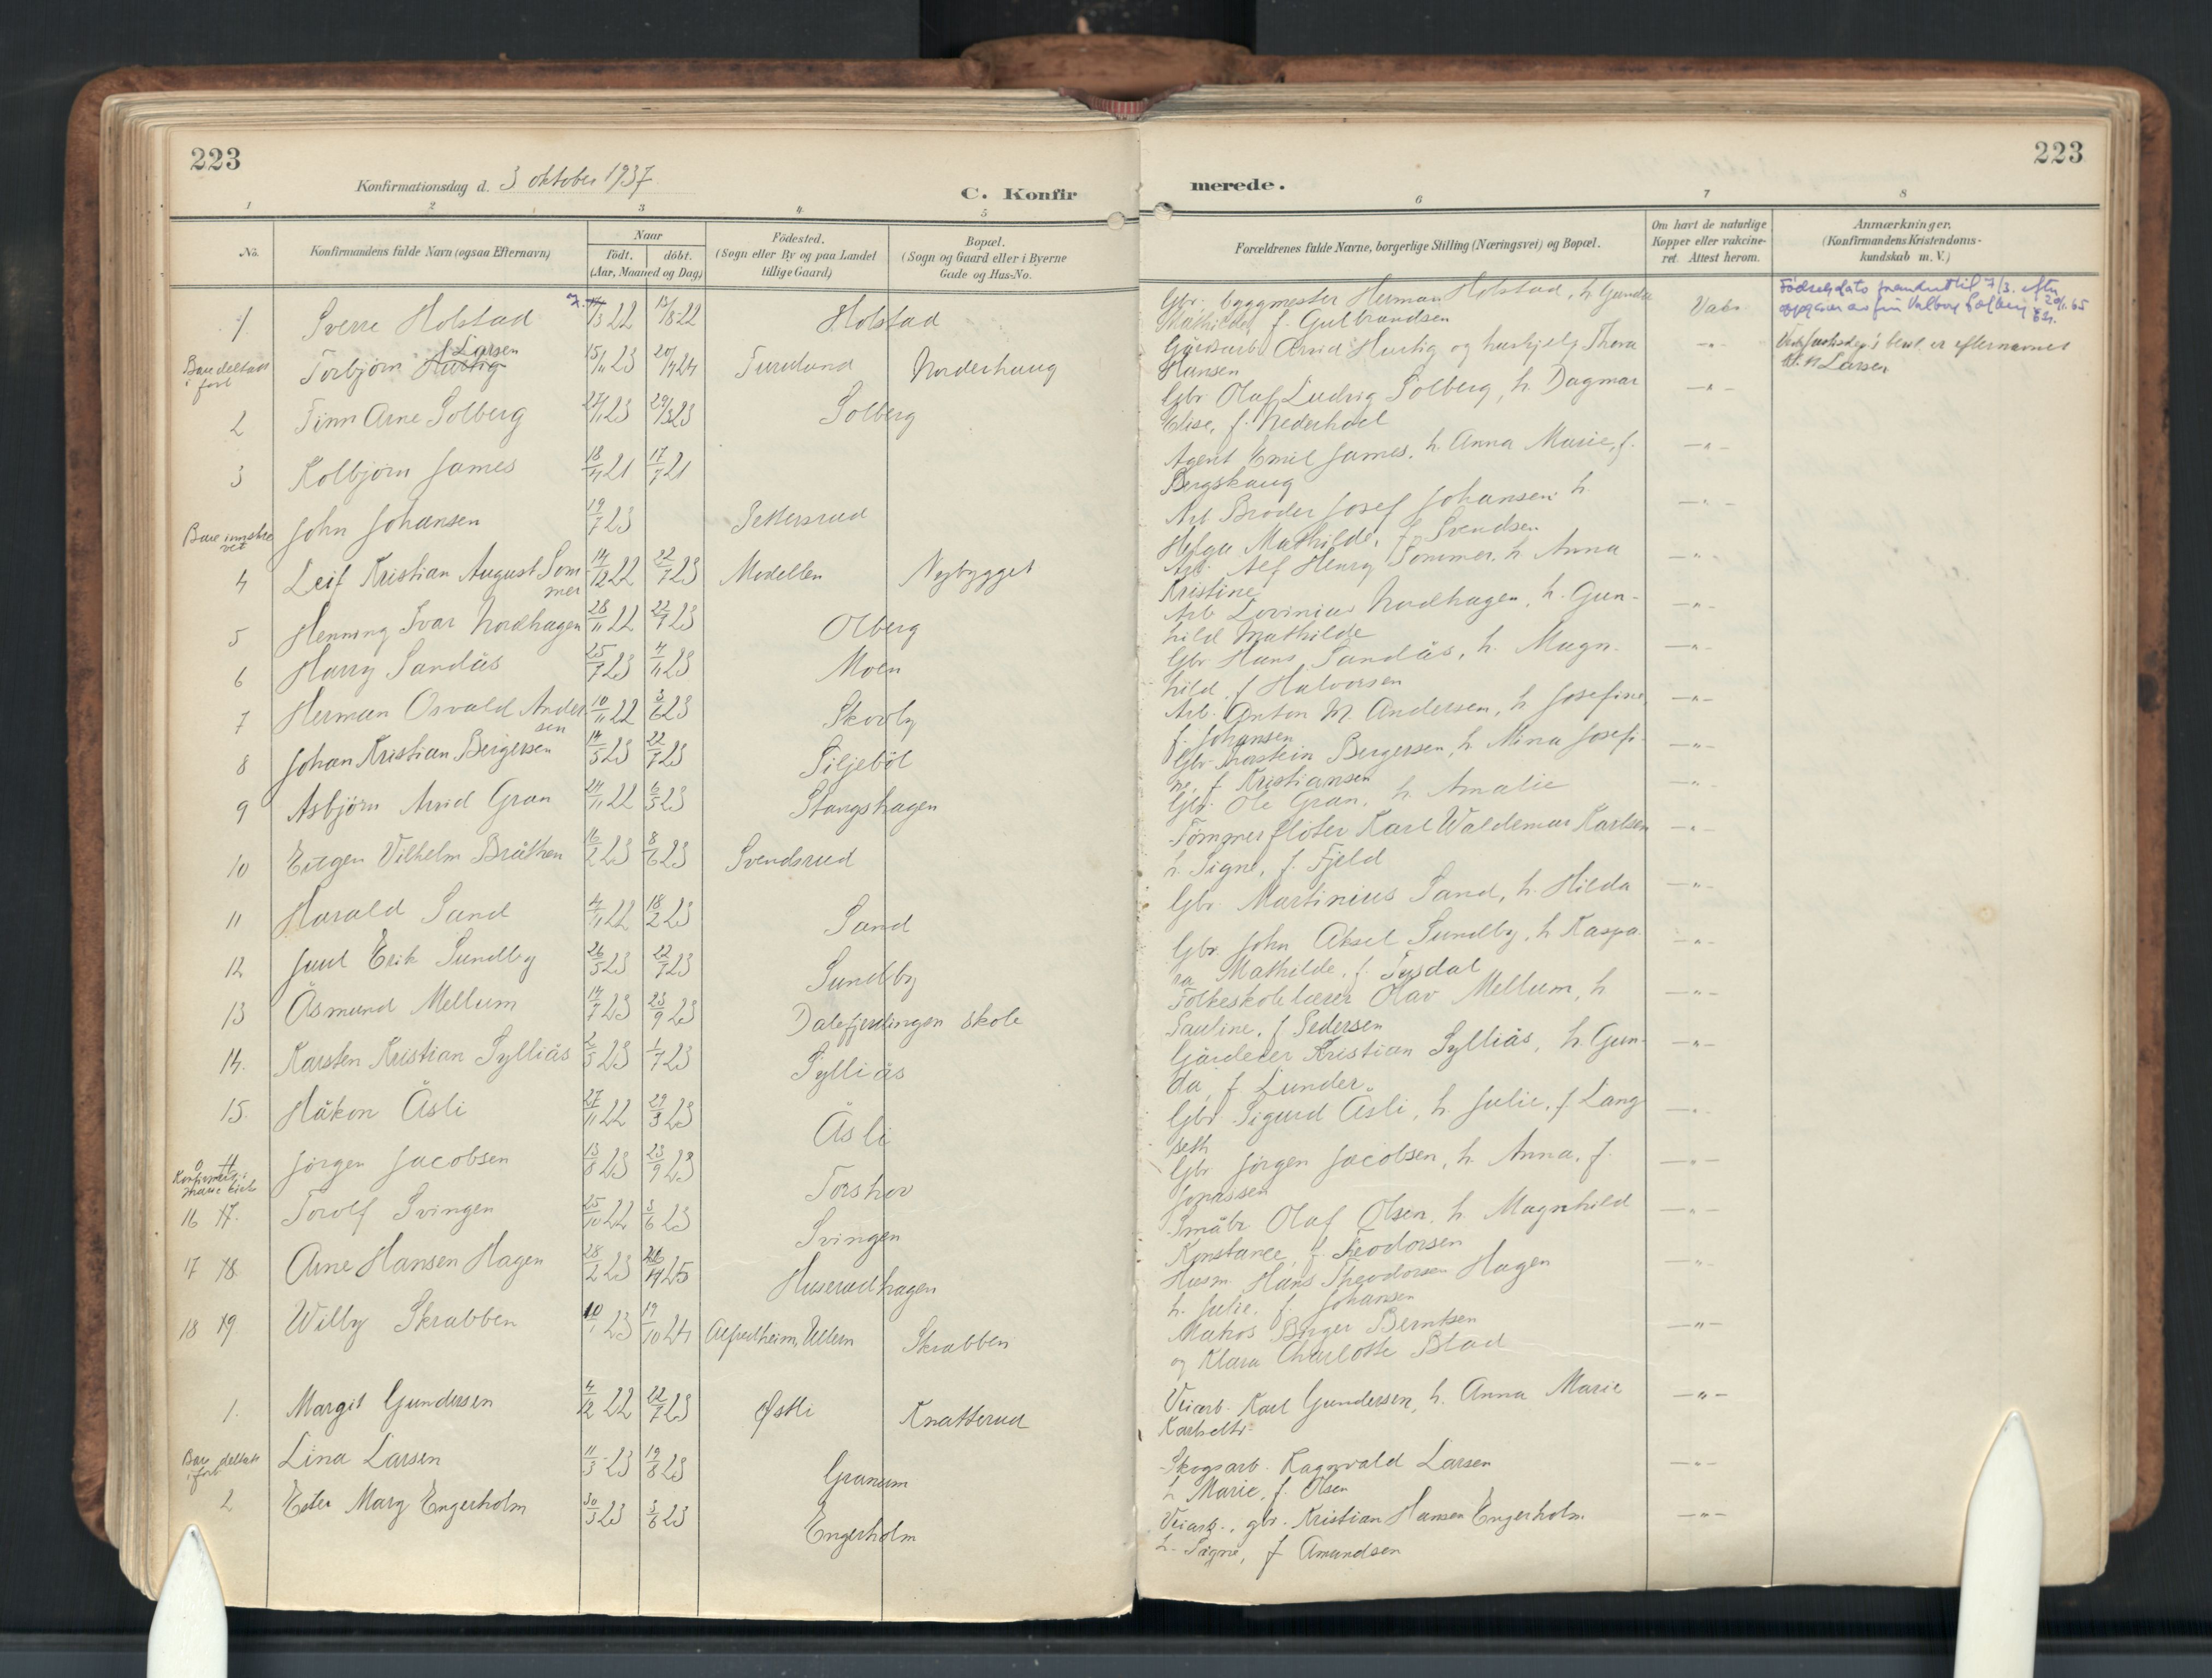 223
Konfirmationsdag d. 3 oktober 1937.
C. Konfir
1 2 3 4 5
No.
Konfirmandens fulde Navn (ogsaa Efternavn)
Naar
født. døbt.
(Aar, Maaned og Dag)
Fødested.
(Sogn eller By og paa Landet
tillige Gaard)
Bopæl.
(Sogn og Gaard eller i Byerne
Gade og Hus-No.
1 Sverre Holstad 7. 14/3 22 13/8-22 Holstad
Bare deltatt i forb Torbjørn Hartig Larsen 15/11 23 20/7 24 Norderhaug
2 Finn Arne Solberg 23 23 Solberg
3 Kolbjørn James 18/4 21 17/7 21
Bare innskrevet John Johansen 19/7 23 Pettersrud
4 Leif Kristian August Sommer 14/12 22 22/7 23 Modellen Nybygget
5 Henning Ivar Nordhagen 28/11 22 22/7 23 Olberg
6 Harry Sandås 25/7 23 4/11 23 Moen
7 Herman Osvald Andersen 10/11 22 3/6 23 Skovly
8 Johan Kristian Bergersen 14/5 23 22/7 23 Siljeböl
9 Asbjörn Arvid Gran 24/11 22 6/5 23 Stangshagen
10 Eugen Vilhelm Bråthen 16/2 23 8/6 23 Svendsrud
11 Harald Sand 4/11 22 18/2 23 Sand
12 Juul Erik Sundby 26/5 23 22/7 23 Sundby
13 Åsmund Mellum 14/7 23 23/9 23 Dalefjerdingen skole
14. Karsten Kristian Sylliås 2/5 23 1/7 23 Sylliås
15. Håkon Åsli 27/11 22 29/3 23 Åsli
0 Jörgen Jacobsen 13/8 23 23/9 23 Torshov
16 17. Torolf Svingen 25/10 22 3/6 23 Svingen
17 18. Arne Hansen Hagen 28/2 23 25 Huserudhagen
18 19 Willy Skrabben 10/1 23 19/10 24 Ullern Skrabben
1. Margit Gundersen 4/12 22 22/7 23 Østli Knatterud
Bare deltatt i forb Lina Larsen 11/3 23 19/8 23 Granum
2 Ester Marg Engerholm 30/3 23 3/6 23 Engerholm
223
merede.
6 7 8
Forældrenes fulde Navne, borgerlige Stilling (Næringsvei) og Bopæl.
Om havt de naturlige
Kopper eller vakcine-
ret. Attest herom.
Anmærkninger.
(Konfirmandens Kristendoms-
kundskab m. V.)
Gbr. byggmester Herman Holstad, h. Gunda
Mathilde, f. Gulbrandsen
Fødselsdato forandret til 7/3. efter
oppgaver av fru Valborg Solberg 20/1. 65
Gårdsarb. Arvid Hartig og hushjelp Thora
Hansen —"—
er efternavnet
Larsen
Gbr. Olaf Ludvig Solberg, h. Dagmar
Elise, f. Nederhoel —"—
Agent Emil James, h. Anna Marie, f.
Bergskaug —"—
Arb. Broder Josef Johansen h.
Helga Mathilde, f. Svendsen —"—
Arb. Alf Henry Sommer, h. Anna
Kristine —"—
Arb. Lovinius Nordhagen, h. Gun-
hild Mathilde —"—
Gbr. Hans Sandås, h. Magn-
hild, f. Halvorsen —"—
Arb. Anton M. Andersen, h. Josefine,
f. Johansen —"—
Gbr. Torstein Bergersen, h. Mina Josefi-
ne, f. Kristiansen —"—
Gbr. Ole Gran, h. Amalie —"—
Tømmerfløter Karl Waldemar Karlsen
h. Signe, f. Fjeld —"—
Gbr. Martinius Sand, h. Hilda —"—
Gbr. John Aksel Sundby, h. Kaspa-
ra Mathilde, f. Tysdal —"—
Folkeskolelærer Olav Mellum, h.
Pauline, f. Pedersen —"—
Gårdeier Kristian Sylliås, h. Gun-
da, f. Lunder. —"—
Gbr. Sigurd Åsli, h. Julie, f. Lang-
seth —"—
Gbr. Jörgen Jacobsen, h. Anna, f.
Jonassen —"—
Småbr. Olaf Olsen, h. Magnhild
Konstance, f. Teodorsen —"—
Husm. Hans Theodorsen Hagen
h. Julie, f. Johansen —"—
Matros Birger Berntsen
og Klara Charlotte Blad —"—
Veiarb. Karl Gundersen, h. Anna Marie —"—
Skogsarb. Ragnvald Larsen
h. Marie, f. Olsen —"—
Veiarb., gbr. Kristian Hansen Engerholm
h. Signe, f. Amundsen —"—